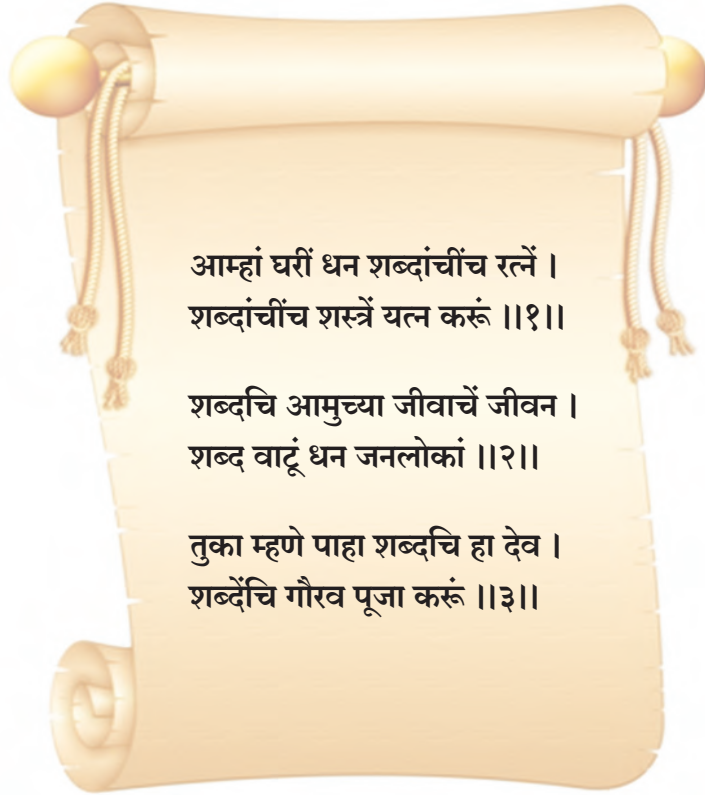 आम्हां घरीं धन शब्दांचींच रत्नें ।
शब्दांचींच शस्त्रें यत्न करूं ।।१।।
शब्दचि आमुच्या जीवाचें जीवन ।
शब्द वाटूं धन जनलोकां ।।२।।
तुका म्हणे पाहा शब्दचि हा देव ।
शब्देंचि गौरव पूजा करूं ।।३।।